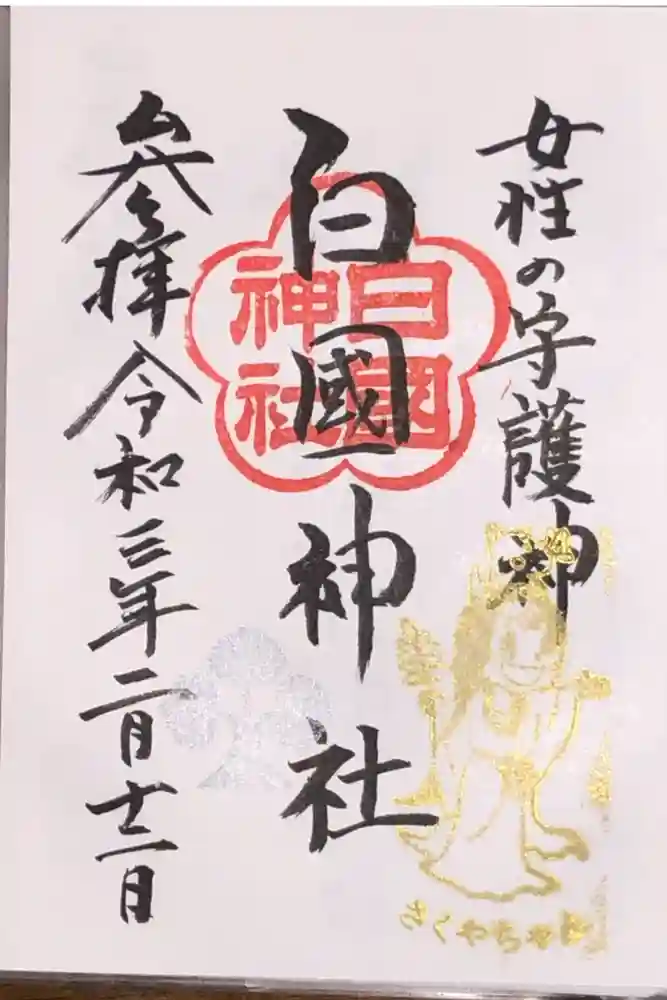 女性の守護神
白國神社
白國神社
参拝令和三年二月十二日
さくやちゃん